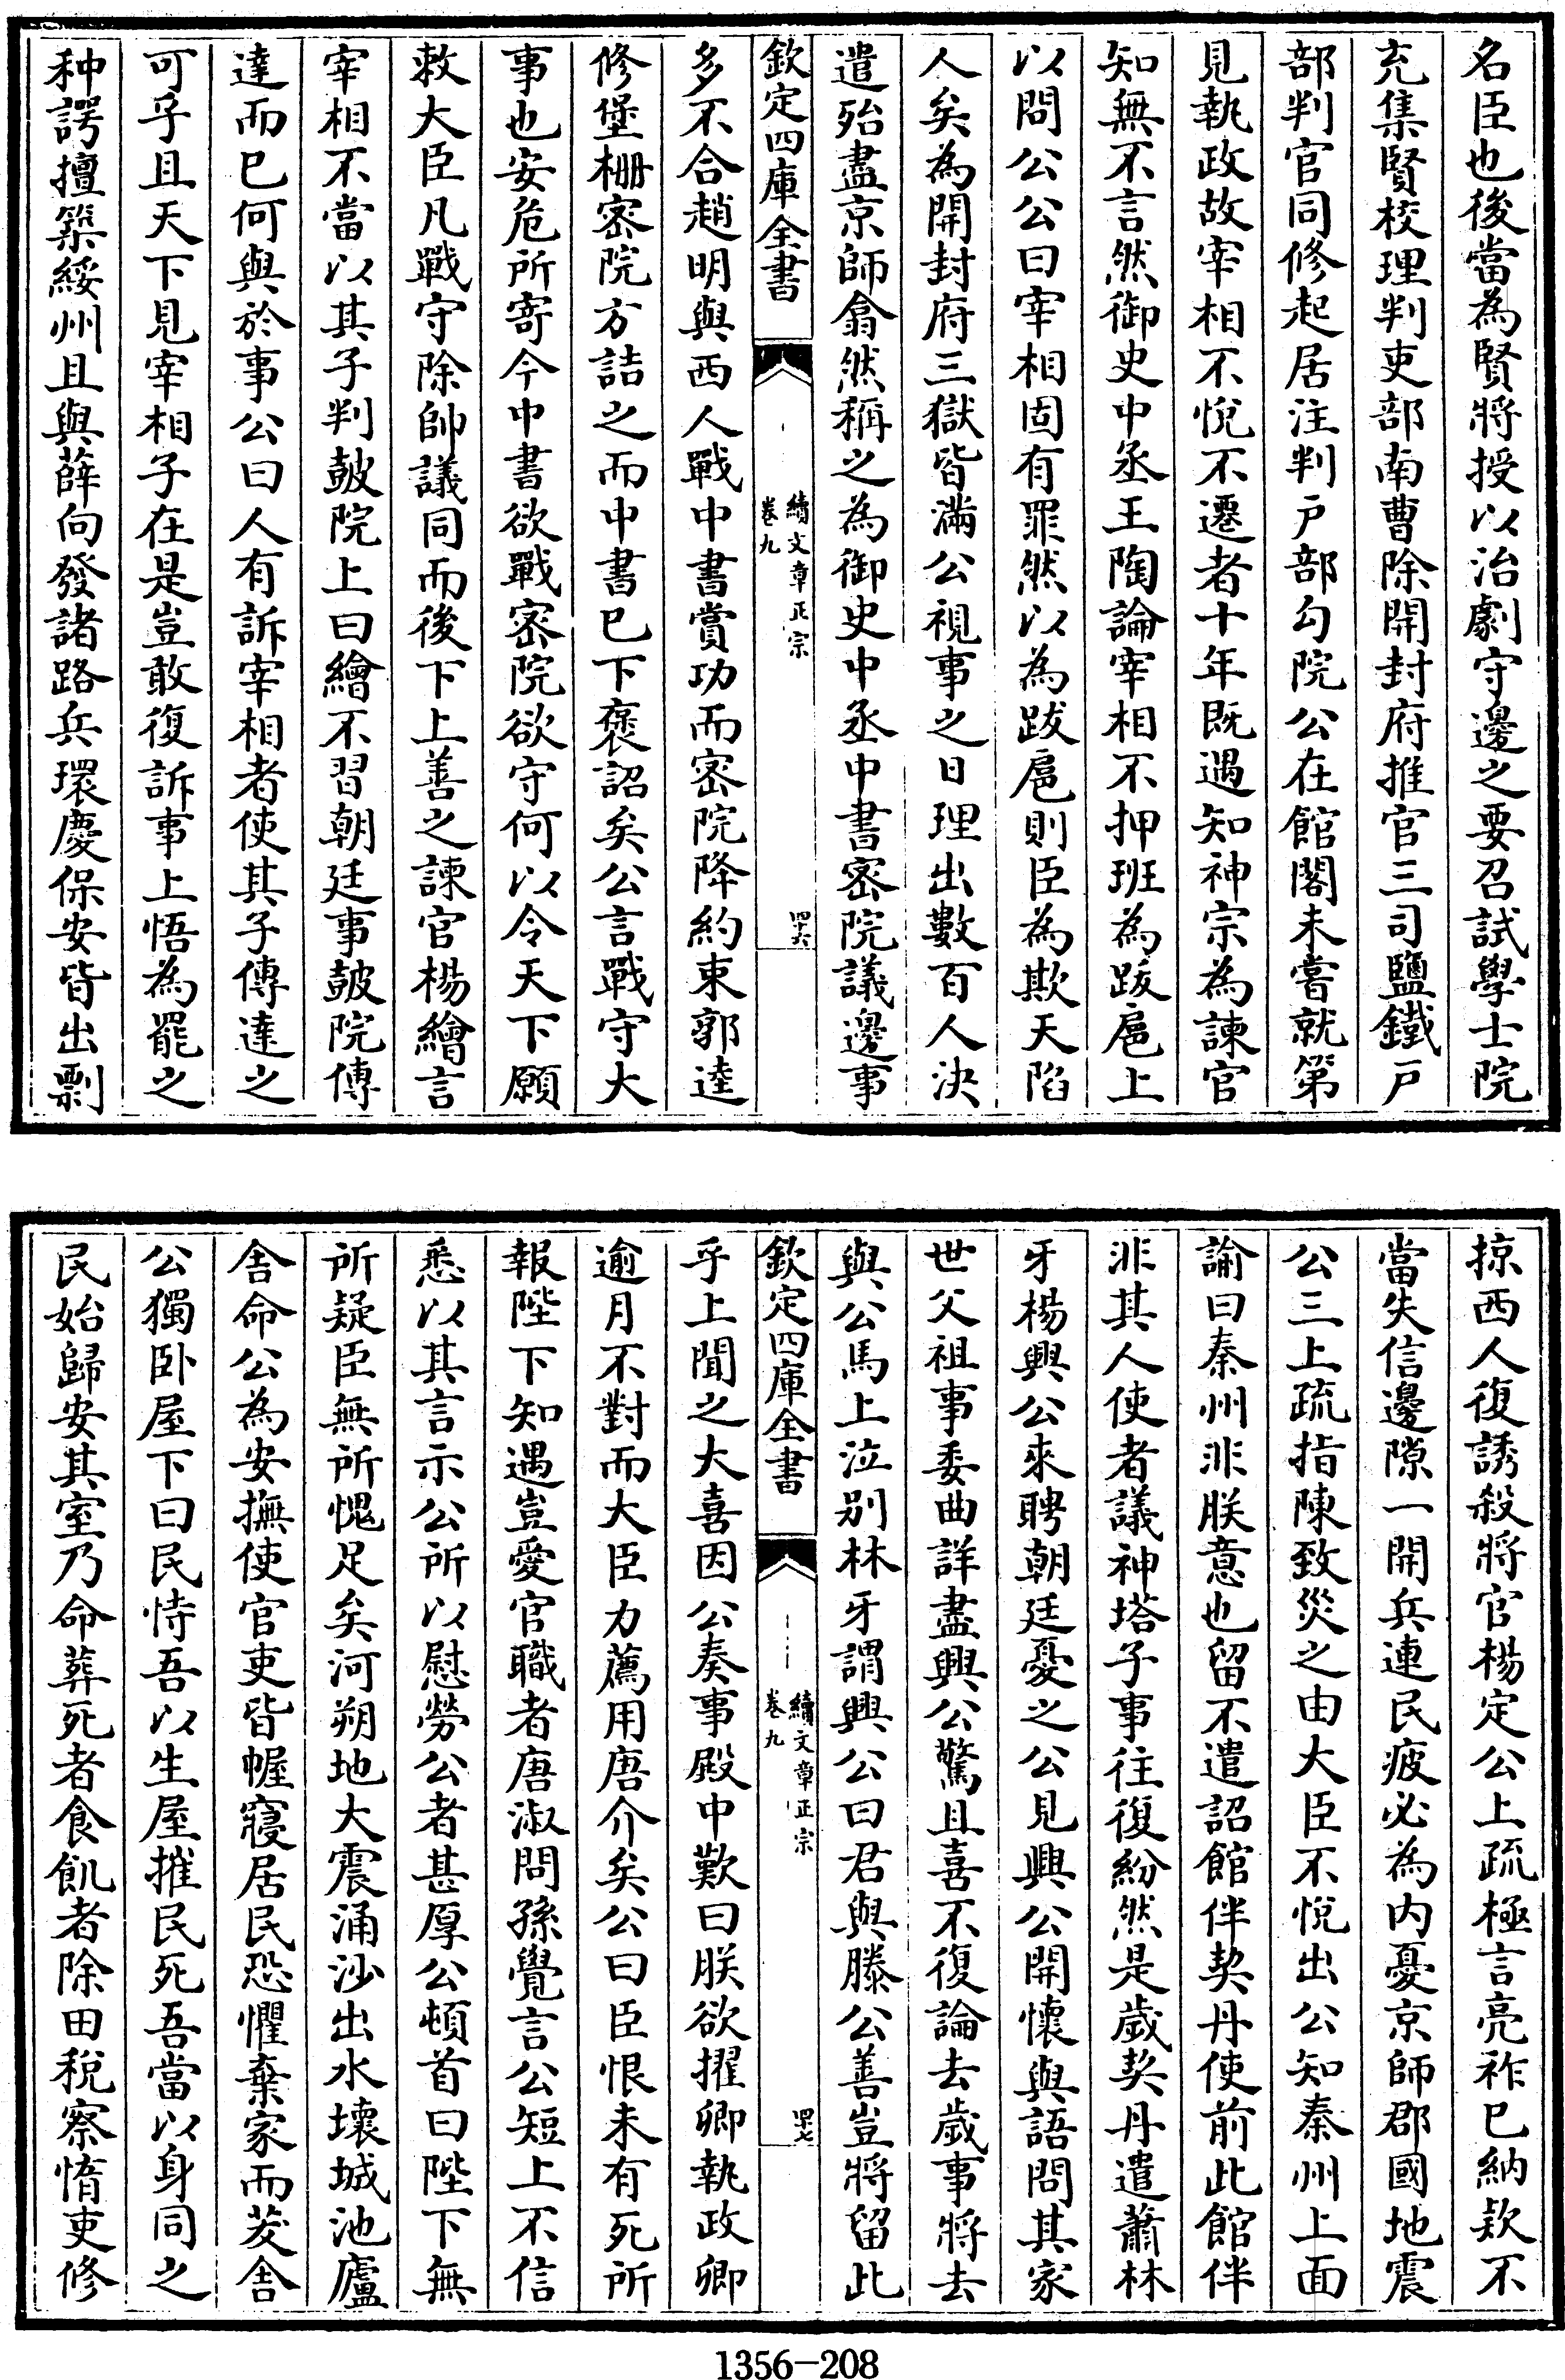 名臣也後當為賢將授以治劇守邊之要召試學士院
充集賢校理判吏部南曹除開封府推官三司鹽鐵戶
部判官同修起居注判戶部勾院公在館閣未嘗就第
見執政故宰相不悅不遷者十年既遇知神宗為諫官
知無不言然御史中丞王陶論宰相不押班為跋扈上
以問公公曰宰相固有罪然以為跋扈則臣為欺天陷
人矣為開封府三獄皆滿公視事之日理出數百人決
遣殆盡京師翕然稱之為御史中丞中書密院議邊事
欽定四庫全書
續文章正宗
卷九
四十六
多不合趙明與西人戰中書賞功而密院降約束郭逵
修堡柵密院方詰之而中書已下褒詔矣公言戰守大
事也安危所寄今中書欲戰密院欲守何以令天下願
敕大臣凡戰守除帥議同而後下上善之諫官楊繪言
宰相不當以其子判鼓院上曰繪不習朝廷事鼓院傳
達而已何與於事公曰人有訴宰相者使其子傳達之
可乎且天下見宰相子在是豈敢復訴事上悟為罷之
种諤擅築綏州且與薛向發諸路兵環慶保安皆出剽
掠西人復誘殺將官楊定公上疏極言亮祚已納欵不
當失信邊隙一開兵連民疲必為內憂京師郡國地震
公三上疏指陳致災之由大臣不悅出公知秦州上面
諭曰秦州非朕意也留不遣詔館伴契丹使前此館伴
非其人使者議神塔子事往復紛然是歲契丹遣蕭林
牙楊興公來聘朝廷憂之公見興公開懷與語問其家
世父祖事委曲詳盡興公驚且喜不復論去歲事將去
與公馬上泣別林牙謂興公曰君與滕公善豈將留此
欽定四庫全書
續文章正宗
卷九
四十七
乎上聞之大喜因公奏事殿中歎曰朕欲擢卿執政卿
逾月不對而大臣力薦用唐介矣公曰臣恨未有死所
報陛下知遇豈愛官職者唐淑問孫覺言公短上不信
悉以其言示公所以慰勞公者甚厚公頓首曰陛下無
所疑臣無所愧足矣河朔地大震涌沙出水壞城池廬
舍命公為安撫使官吏皆幄寢居民恐懼棄家而茇舍
公獨卧屋下曰民恃吾以生屋摧民死吾當以身同之
民始歸安其室乃命葬死者食飢者除田稅察惰吏修
1356-208